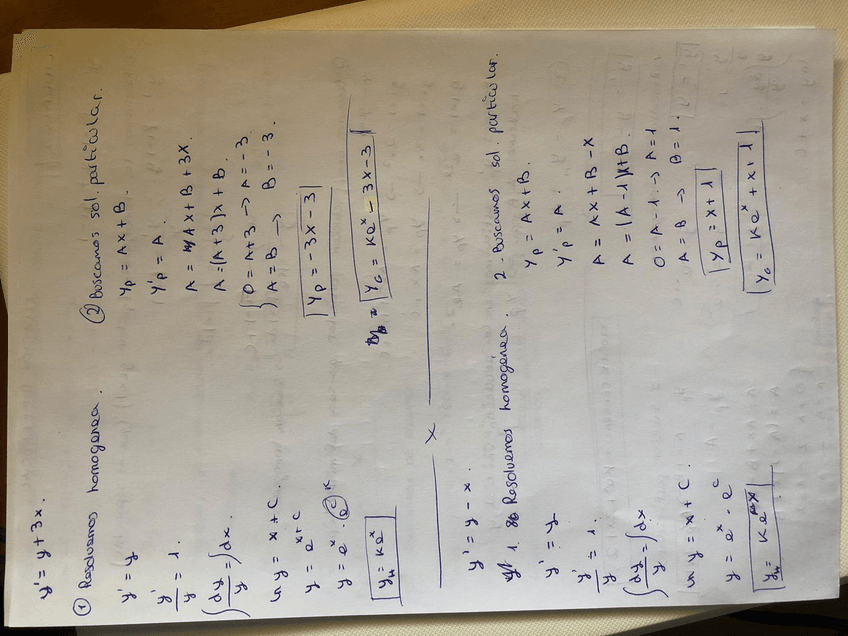 y' = y + 3x.
① Resolvemos homogénea.
y' = y
y'/y = 1.
∫ dy/y = ∫ dx.
ln y = x + C.
y = e^(x+C)
y = e^x · e^C K
y_H = Ke^x
② Buscamos sol. particular.
Y_p = Ax + B.
Y'_p = A.
A = Ax + B + 3x.
A = (A+3)x + B.
{ 0 = A+3 → A = -3
A = B → B = -3.
Y_p = -3x - 3
Y_G = Ke^x - 3x - 3
x
y' = y - x.
1. Resolvemos homogénea.
y' = y
y'/y = 1.
∫ dy/y = ∫ dx
ln y = x + C.
y = e^x · e^C
y_H = Ke^x
2. Buscamos sol. particular.
Y_p = Ax + B.
Y'_p = A.
A = Ax + B - x
A = (A-1)x + B.
0 = A-1 → A = 1
A = B → B = 1.
Y_p = x + 1
Y_G = Ke^x + x + 1